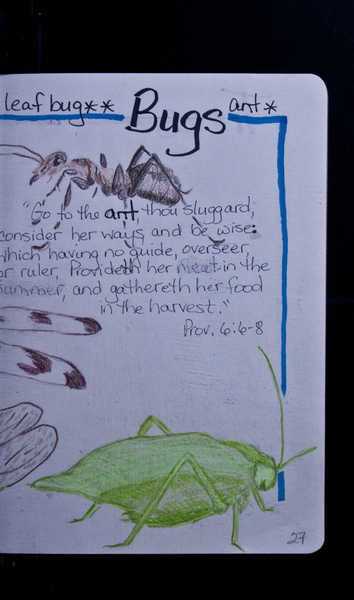 leaf bug** Bugs ant*
"Go to the ant, thou sluggard;
consider her ways and be wise:
which having no guide, overseer,
or ruler, Provideth her meat in the
summer, and gathereth her food
in the harvest."
Prov. 6:6-8
27